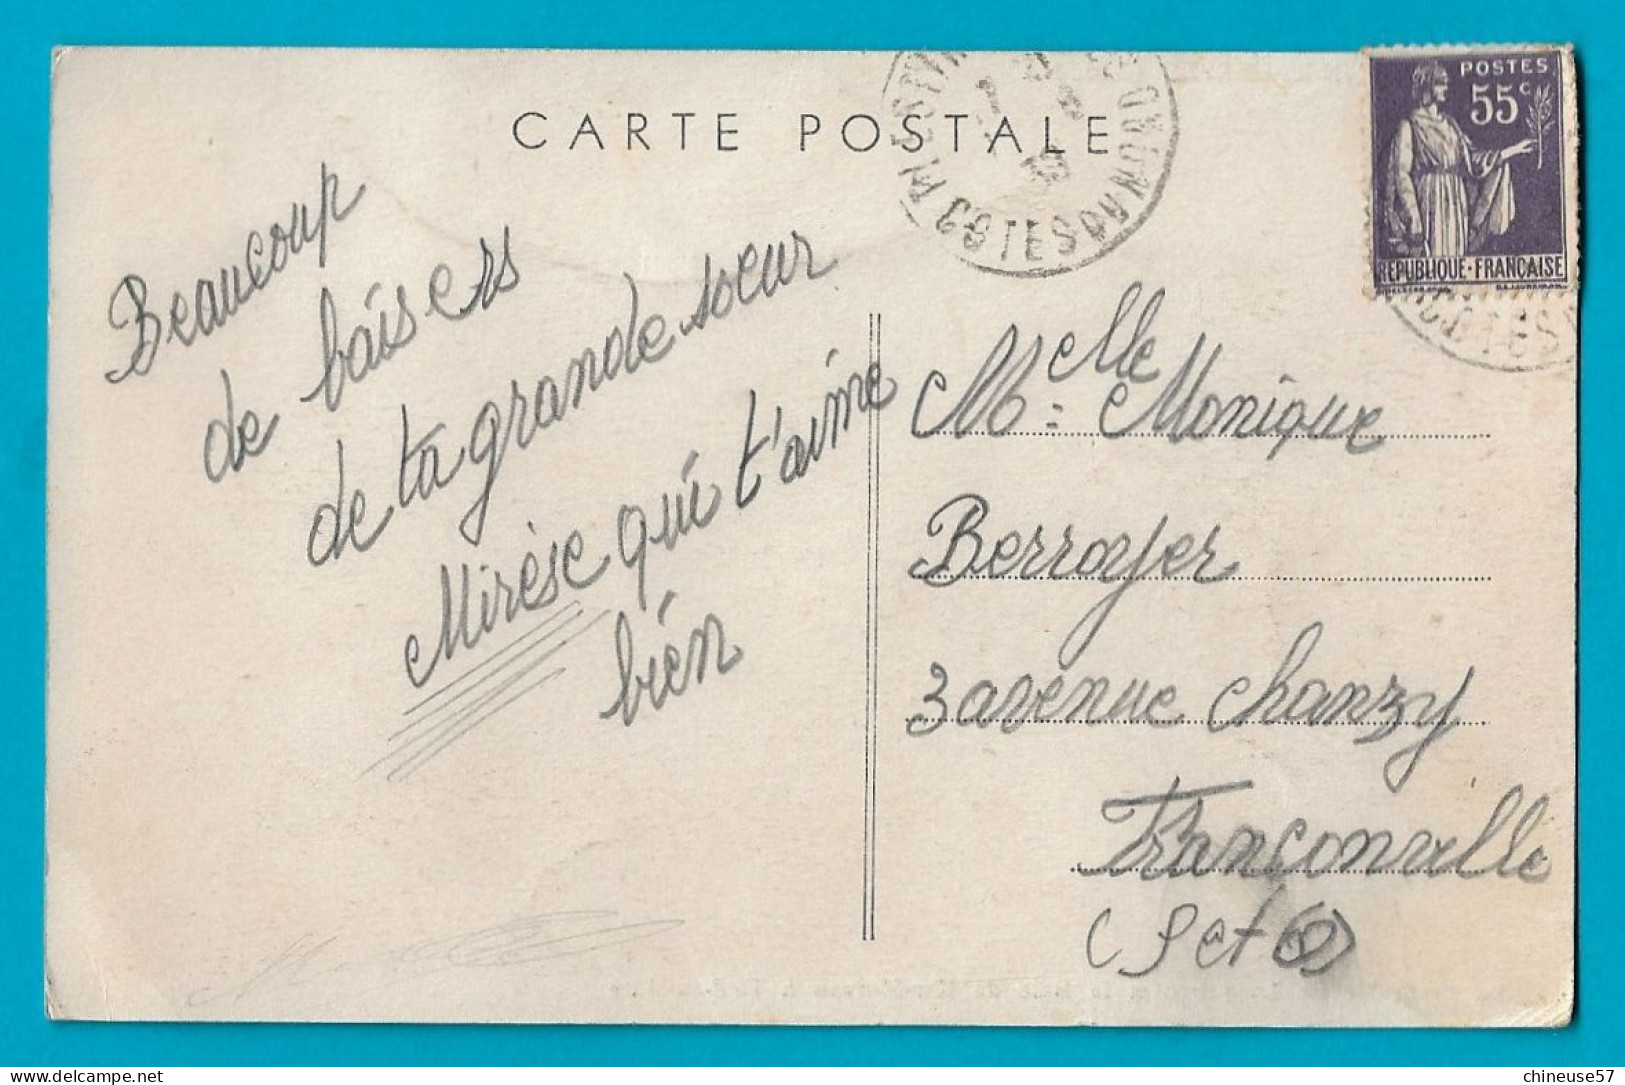 CARTE POSTALE
POSTES
55c
REPUBLIQUE·FRANÇAISE
COTES DU NORD
38
Beaucoup
de baisers
de ta grande soeur
Mirèse qui t'aime
bien
Melle Monique
Berroyer
3 avenue Chanzy
Franconville
(S et O)
chineuse57